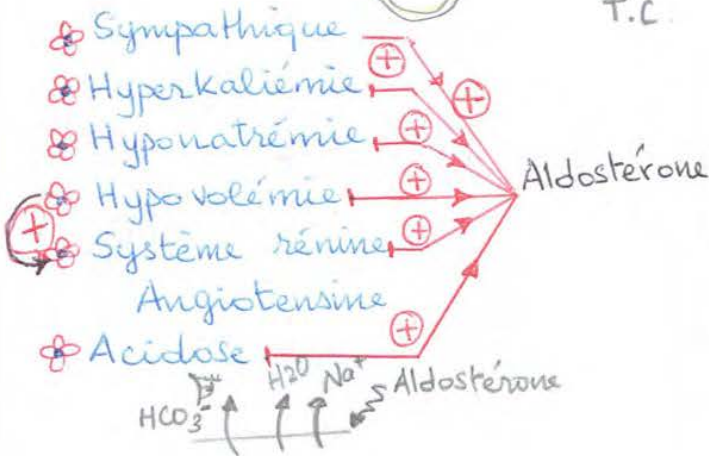 T.C.
Sympathique
Hyperkaliémie
Hyponatrémie
Hypovolémie
Système rénine
Angiotensine
Acidose
Aldostérone
HCO3- H2O Na+ Aldostérone